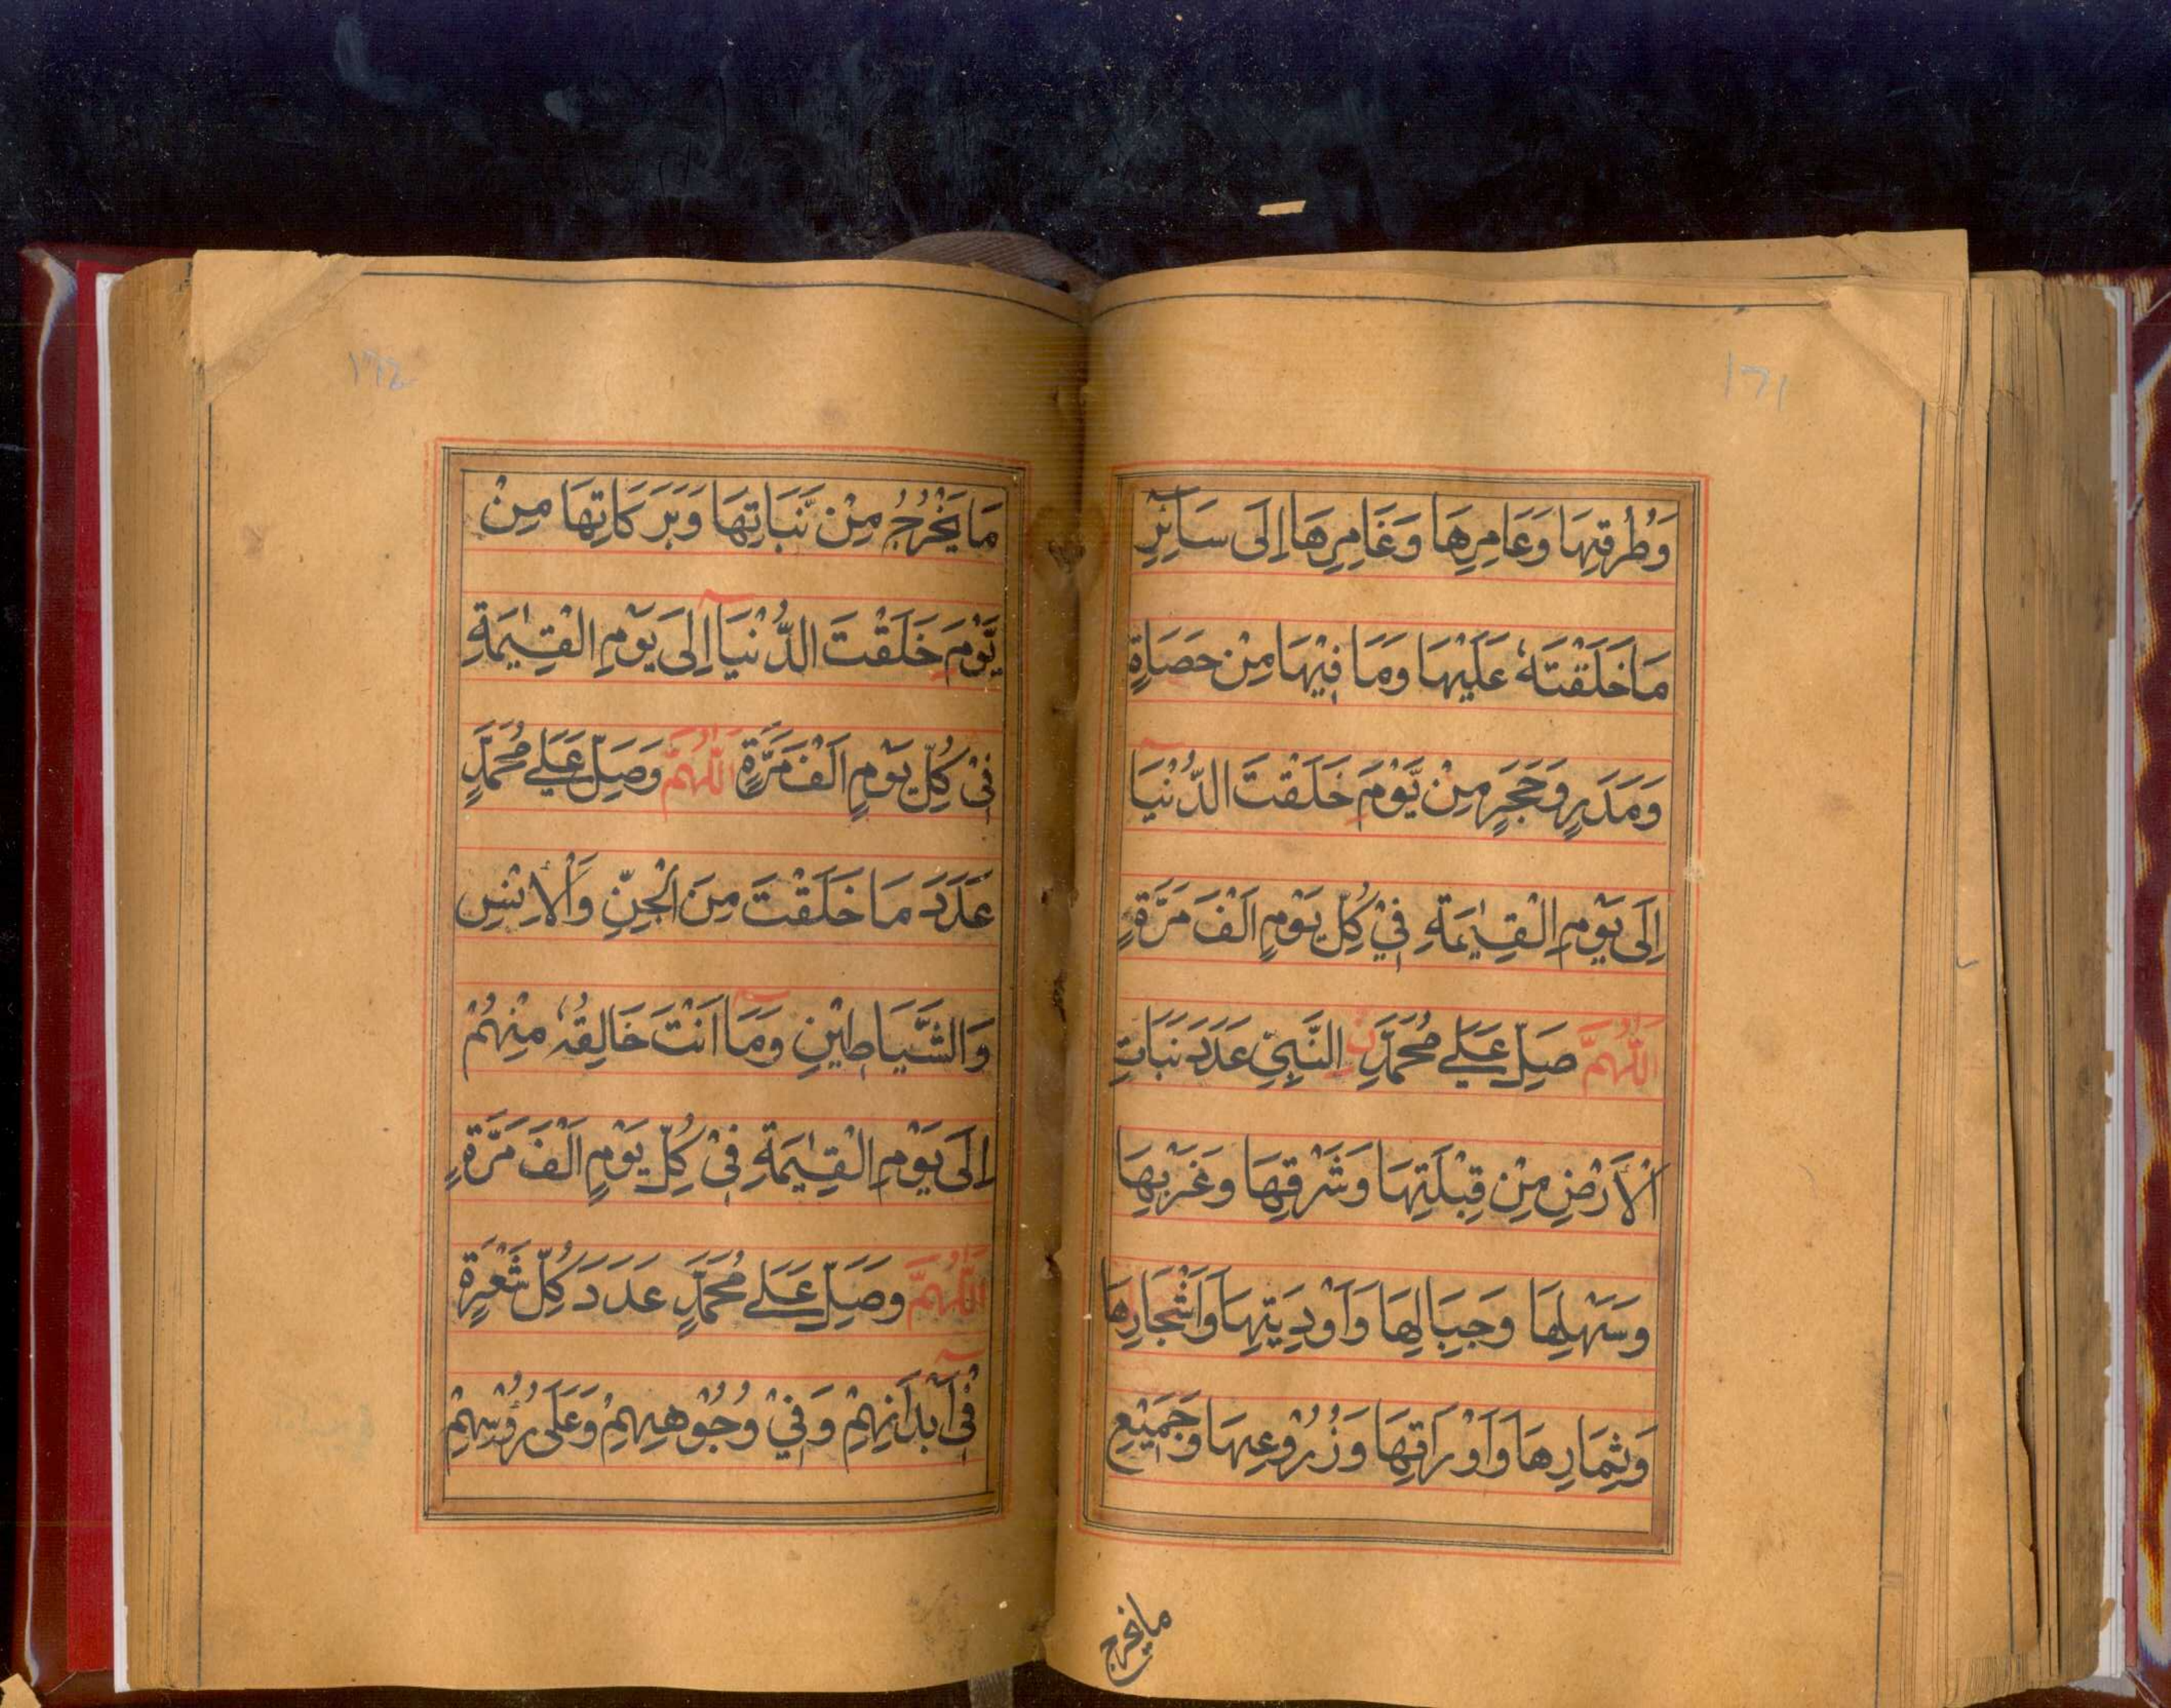 ١٦١
وَطُرُقِهَا وَعَامِرِهَا وَغَامِرِهَا اِلَى سَآئِرِ
مَا خَلَقْتَهٗ عَلَيْهَا وَمَا فِيْهَا مِنْ حَصَاةٍ
وَمَدَرٍ وَحَجَرٍ مِنْ يَّوْمَ خَلَقْتَ الدُّنْيَا
اِلَى يَوْمِ الْقِيٰمَةِ فِيْ كُلِّ يَوْمٍ اَلْفَ مَرَّةٍ
اَللّٰهُمَّ صَلِّ عَلٰى مُحَمَّدِنِ النَّبِيِّ عَدَدَ نَبَاتِ
الْاَرْضِ مِنْ قِبْلَتِهَا وَشَرْقِهَا وَغَرْبِهَا
وَسَهْلِهَا وَجِبَالِهَا وَاَوْدِيَتِهَا وَاَشْجَارِهَا
وَثِمَارِهَا وَاَوْرَاقِهَا وَزُرُوْعِهَا وَجَمِيْعِ
ما يخرج
مَا يَخْرُجُ مِنْ نَّبَاتِهَا وَبَرَكَاتِهَا مِنْ
يَّوْمَ خَلَقْتَ الدُّنْيَآ اِلَى يَوْمِ الْقِيٰمَةِ
فِيْ كُلِّ يَوْمٍ اَلْفَ مَرَّةٍ اَللّٰهُمَّ وَصَلِّ عَلٰى مُحَمَّدٍ
عَدَدَ مَا خَلَقْتَ مِنَ الْجِنِّ وَالْاِنْسِ
وَالشَّيَاطِيْنِ وَمَآ اَنْتَ خَالِقُهٗ مِنْهُمْ
اِلَى يَوْمِ الْقِيٰمَةِ فِيْ كُلِّ يَوْمٍ اَلْفَ مَرَّةٍ
اَللّٰهُمَّ وَصَلِّ عَلٰى مُحَمَّدٍ عَدَدَ كُلِّ شَعْرَةٍ
فِيْٓ اَبْدَانِهِمْ وَفِيْ وُجُوْهِهِمْ وَعَلَى رُؤُسِهِمْ